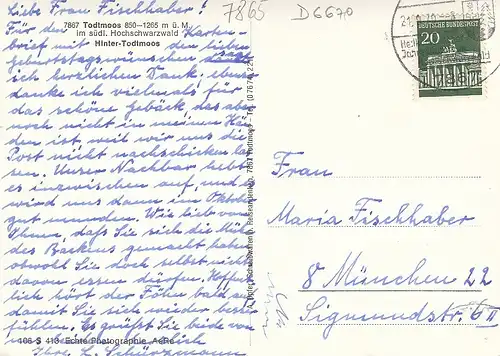 7865
D6670
Liebe Frau Fischhaber!
7867 Todtmoos 850–1265 m ü. M.
im südl. Hochschwarzwald
Hinter-Todtmoos
Für den Karten-
brief mit den lieben
Geburtstagswünschen danke
ich herzlichen Dank. Ebenso
danke ich vielmals für
das schöne Gebäck, das aber
noch nicht in meinen Hän-
den ist, weil wir uns die
Post nicht nachschicken las-
sen. Unser Nachbar hebt
es inzwischen auf, und
wird uns dann im Oktober
gut munden. Wie lieb von
Ihnen, daß Sie sich die Mühe
des Backens gemacht haben
obwohl Sie doch selbst nichts
davon essen dürfen. Hoffent-
lich hört der Föhn bald auf
damit Sie sich wieder besser
fühlen. Es grüßt Sie beide von
Ihre L. Schürzmann
406 S 413 Echte Photographie
7867 Todtmoos
DEUTSCHE BUNDESPOST
20
Frau
Maria Fischhaber
8 München 22
Sigmundstr. 6 II